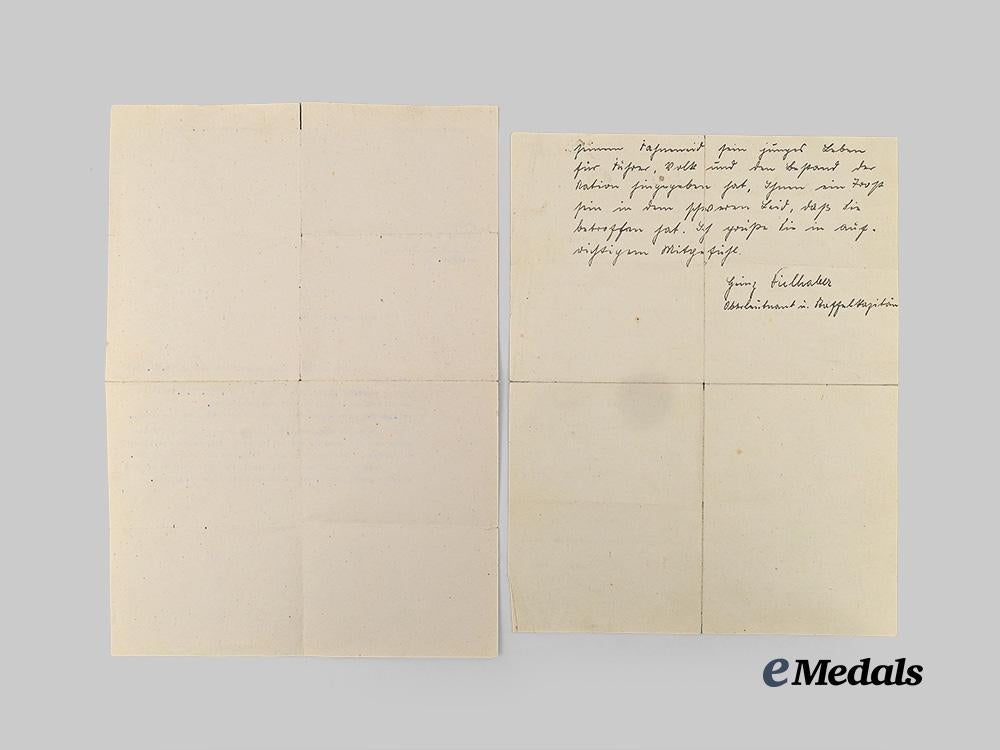 seinem Fahneneid sein junges Leben
für Führer, Volk und den Bestand der
Nation hingegeben hat, Ihnen ein Trost
sein in dem schweren Leid, daß Sie
betroffen hat. Ich grüße Sie in auf-
richtigem Mitgefühl.
Heinz Fielhaber
Oberleutnant u. Staffelkapitän
eMedals